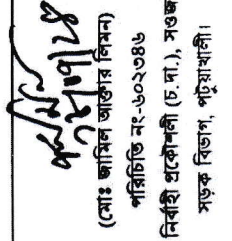 (মোঃ জামিল আক্তার লিমন)
পরিচিতি নং-৬০২৩৪৬
নির্বাহী প্রকৌশলী (চ.দা.), সওজ
সড়ক বিভাগ, পটুয়াখালী।